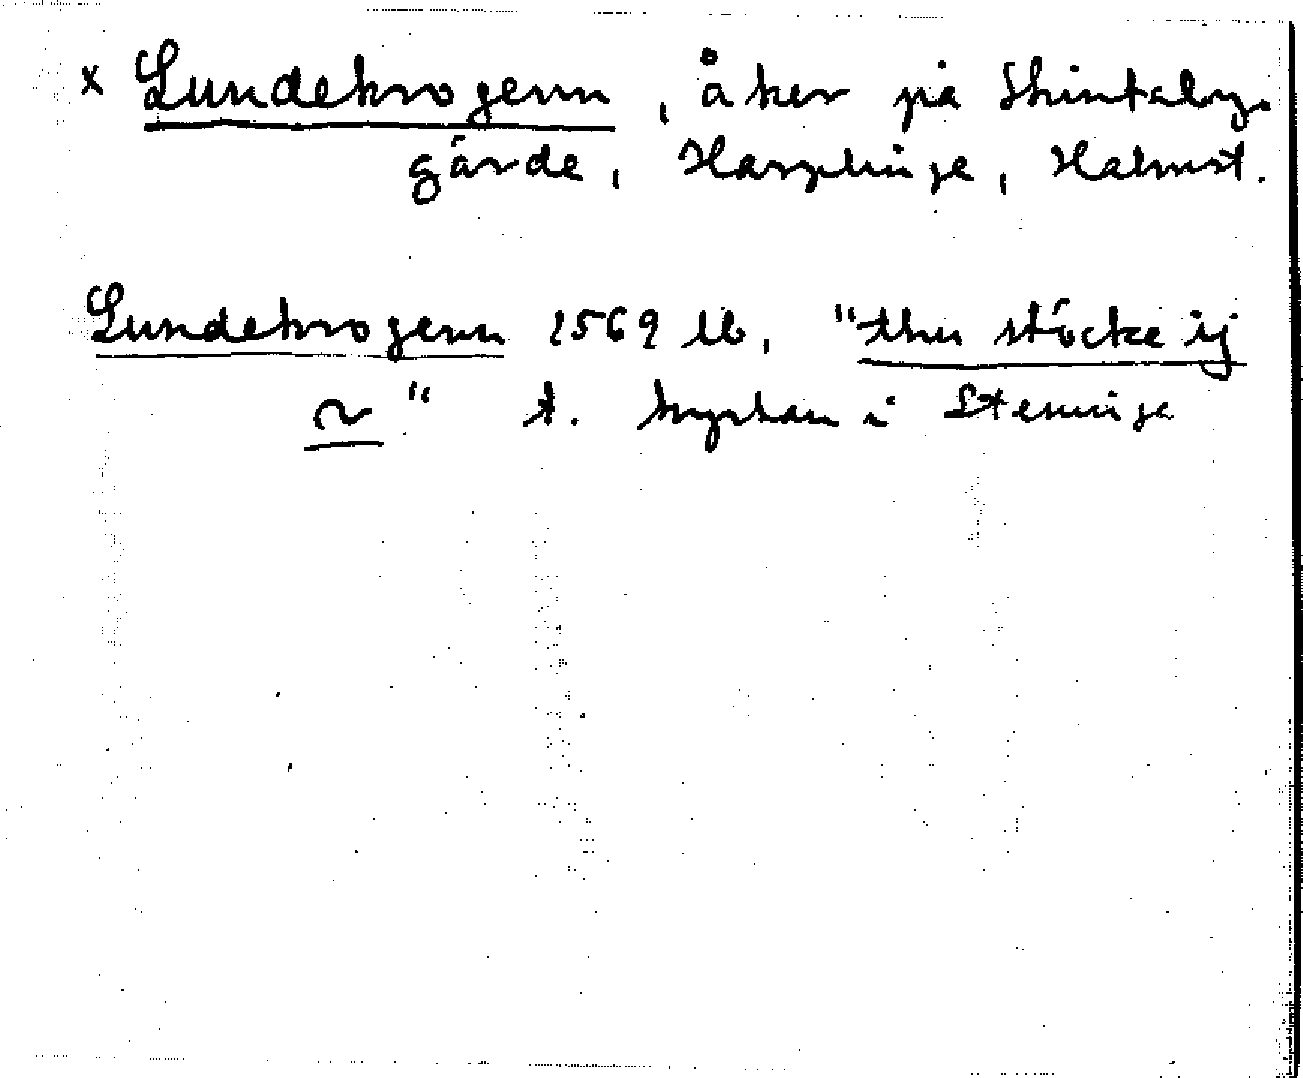 x Lundekrogenn, åker på Skintaby-
gärde, Harplinge, Halmst.
Lundekrogenn 1569 lb, "thu stöcke ij
~" t. kyrkan i Steninge